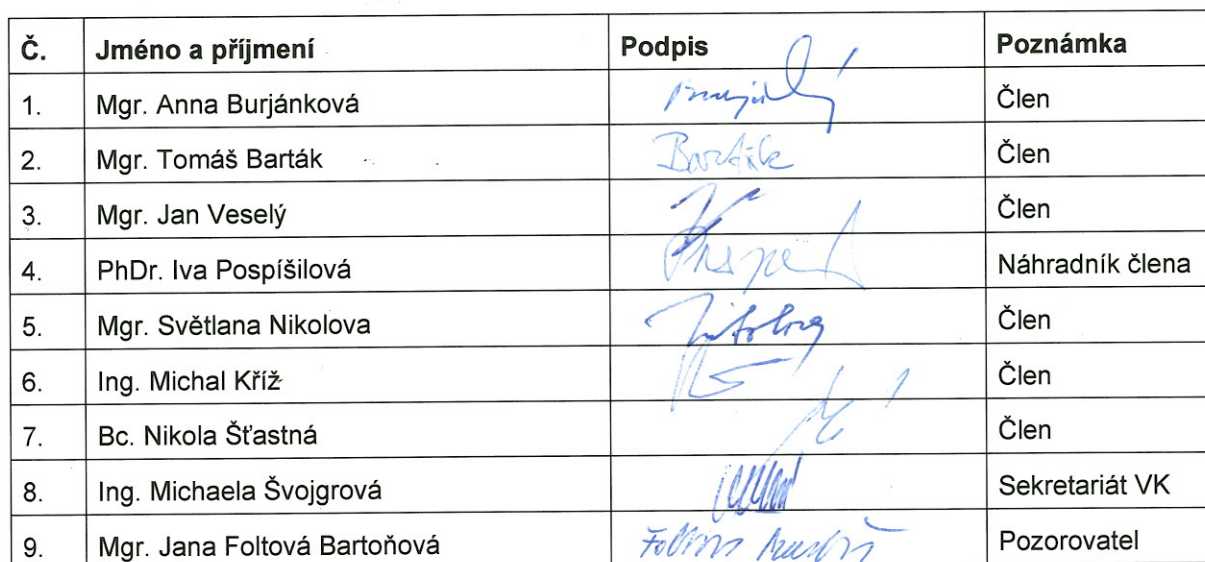 Č. Jméno a příjmení Podpis Poznámka
1. Mgr. Anna Burjánková Člen
2. Mgr. Tomáš Barták Barták Člen
3. Mgr. Jan Veselý Člen
4. PhDr. Iva Pospíšilová Náhradník člena
5. Mgr. Světlana Nikolova Člen
6. Ing. Michal Kříž Člen
7. Bc. Nikola Šťastná Člen
8. Ing. Michaela Švojgrová Sekretariát VK
9. Mgr. Jana Foltová Bartoňová Pozorovatel